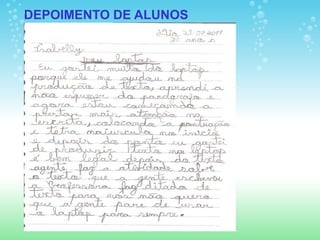 DEPOIMENTO DE ALUNOS
Dia 25.07.2011
2º ano C
Isabelly
meu laptop
Eu gostei muito do laptop
porque ele me ajudou na
produção de texto, aprendi a
não esquecer do parágrafo e
agora estou começando a
prestar mais atenção na
escrita, colocando a pontuação
e letra maiuscula no inicio
e depois do ponto eu gostei
de produzir texto no laptop
é bem legal depois do texto
agente faz a atividade sobre
o texto que a gente escreveu
a professora faz ditado de
texto para nós não quero
que a gente pare de usar
o laptop para sempre.